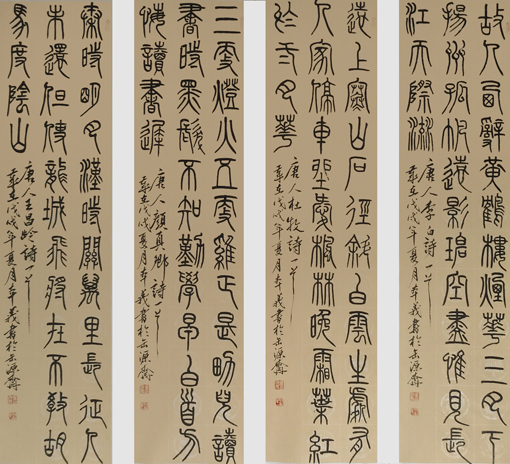 故人西辭黃鶴樓煙華三月下
揚州孤帆遠影碧空盡惟見長
江天際流
唐人李白詩一首
歲在戊戌年夏月本義書於
遠上寒山石徑斜白雲生處有
人家停車坐愛楓林晚霜葉紅
於二月華
唐人杜牧詩一首
歲在戊戌年夏月本義書於
三更燈火五更雞正是男兒讀
書時黑髮不知勤學早白首方
悔讀書遲
唐人顏真卿詩一首
歲在戊戌年夏月本義書於
秦時明月漢時關萬里長征人
未還但使龍城飛將在不教胡
馬度陰山
唐人王昌齡詩一首
歲在戊戌年夏月本義書於